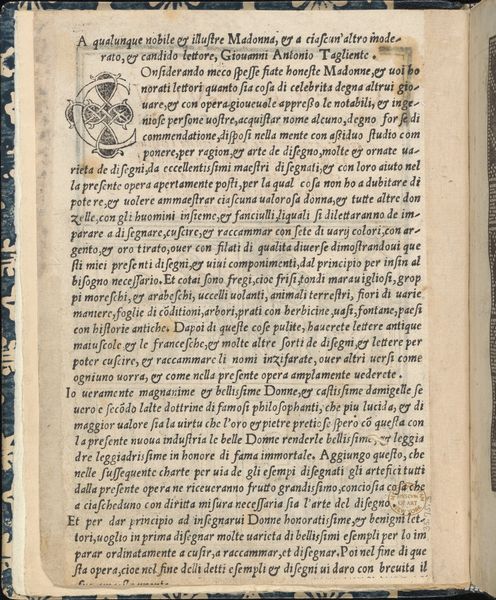 A qualunque nobile & illustre Madonna, & a ciascun'altro mode-
rato, & candido lettore, Giouanni Antonio Tagliente.
COnsiderando meco spesse fiate honeste Madonne, & uoi ho
norati lettori quanto sia cosa di celebrita degna altrui gio-
uare, & con opera gioueuole appresso le notabili, & inge-
niose persone uostre, acquistar nome alcuno, degno forse di
commendatione, disposi nella mente con assiduo studio com
ponere, per ragion, & arte de disegno, molte & ornate ua-
rieta de disegni, da eccellentissimi maestri disegnati, & con loro aiuto nel
la presente opera apertamente posti, per la qual cosa non ho a dubitare di
potere, & uolere ammaestrar ciascuna ualorosa donna, & tutte altre don
zelle, con gli huomini insieme, & fanciulli, liquali si dilettaranno de im-
parare a disegnare, cuscire, & raccammar con sete di uarij colori, con ar-
gento, & oro tirato, ouer con filati di qualita diuerse dimostrandoui que
sti miei presenti disegni, & uiui componimenti, dal principio per insin al
bisogno necessario. Et cotai sono fregi, cioe frisi, tondi marauigliosi, grop
pi moreschi, & arabeschi, uccelli uolanti, animali terrestri, fiori di uarie
maniere, foglie di cōditioni, arbori, prati con herbicine, uasi, fontane, paesi
con historie antiche. Dapoi di queste cose pulite, hauerete lettere antique
maiuscole & le francesche, & molte altre sorti de disegni, & lettere per
poter cuscire, & raccammare li nomi inzifarate, ouer altri uersi come
ogniuno uorra, & come nella presente opera amplamente uederete.
Io ueramente magnanime & bellissime Donne, & castissime damigelle se
uero e secōdo lalte dottrine di famosi philosophanti, che piu lucida, & di
maggior ualore sia la uirtu che l'oro & pietre pretiose spero cō questa con
la presente nuoua industria le belle Donne renderle bellissime, & leggia
dre leggiadrissime in honore di fama immortale. Aggiungo questo, che
nelle susseguente charte per uia de gli esempi disegnati gli artefici tutti
dalla presente opera ne riceueranno frutto grandissimo, conciosia cosa che
a ciascheduno con diritta misura necessaria sia l'arte del disegno
Et per dar principio ad insegnarui Donne honoratissime, & benigni let-
tori, uoglio in prima disegnar molte uarieta di bellissimi esempli per lo im
parar ordinatamente a cusir, a raccammar, et disegnar. Poi nel fine di que
sta opera, cioe nel fine delli detti esempli & disegni ui daro con breuita il